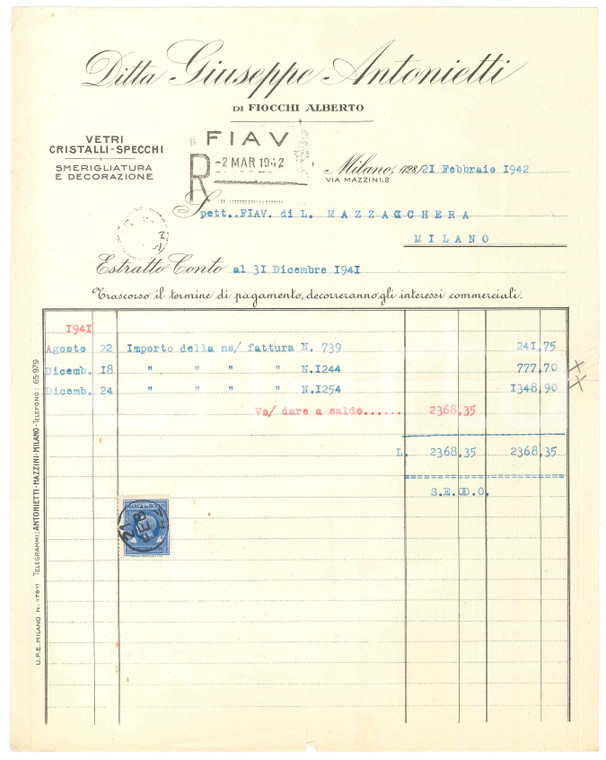 Ditta Giuseppe Antonietti
DI FIOCCHI ALBERTO
VETRI
CRISTALLI-SPECCHI
SMERIGLIATURA
E DECORAZIONE
FIAV
R -2 MAR 1942
Milano, 21 Febbraio 1942
VIA MAZZINI, 2
Spett. FIAV. di L. MAZZACCHERA
MILANO
Estratto Conto al 31 Dicembre 1941
Trascorso il termine di pagamento, decorreranno gli interessi commerciali.
1941
Agosto 22 Importo della ns/ fattura N. 739 241,75
Dicemb. 18 " " " " N.1244 777,70
Dicemb. 24 " " " " N.1254 1348,90
Vs/ dare a saldo...... 2368,35
L. 2368,35 2368,35
S.E.O.O.
MARCA DA BOLLO
21 FEB
U.P.E. MILANO N. 17611 TELEGRAMMI: ANTONIETTI-MAZZINI-MILANO-TELEFONO: 65-979